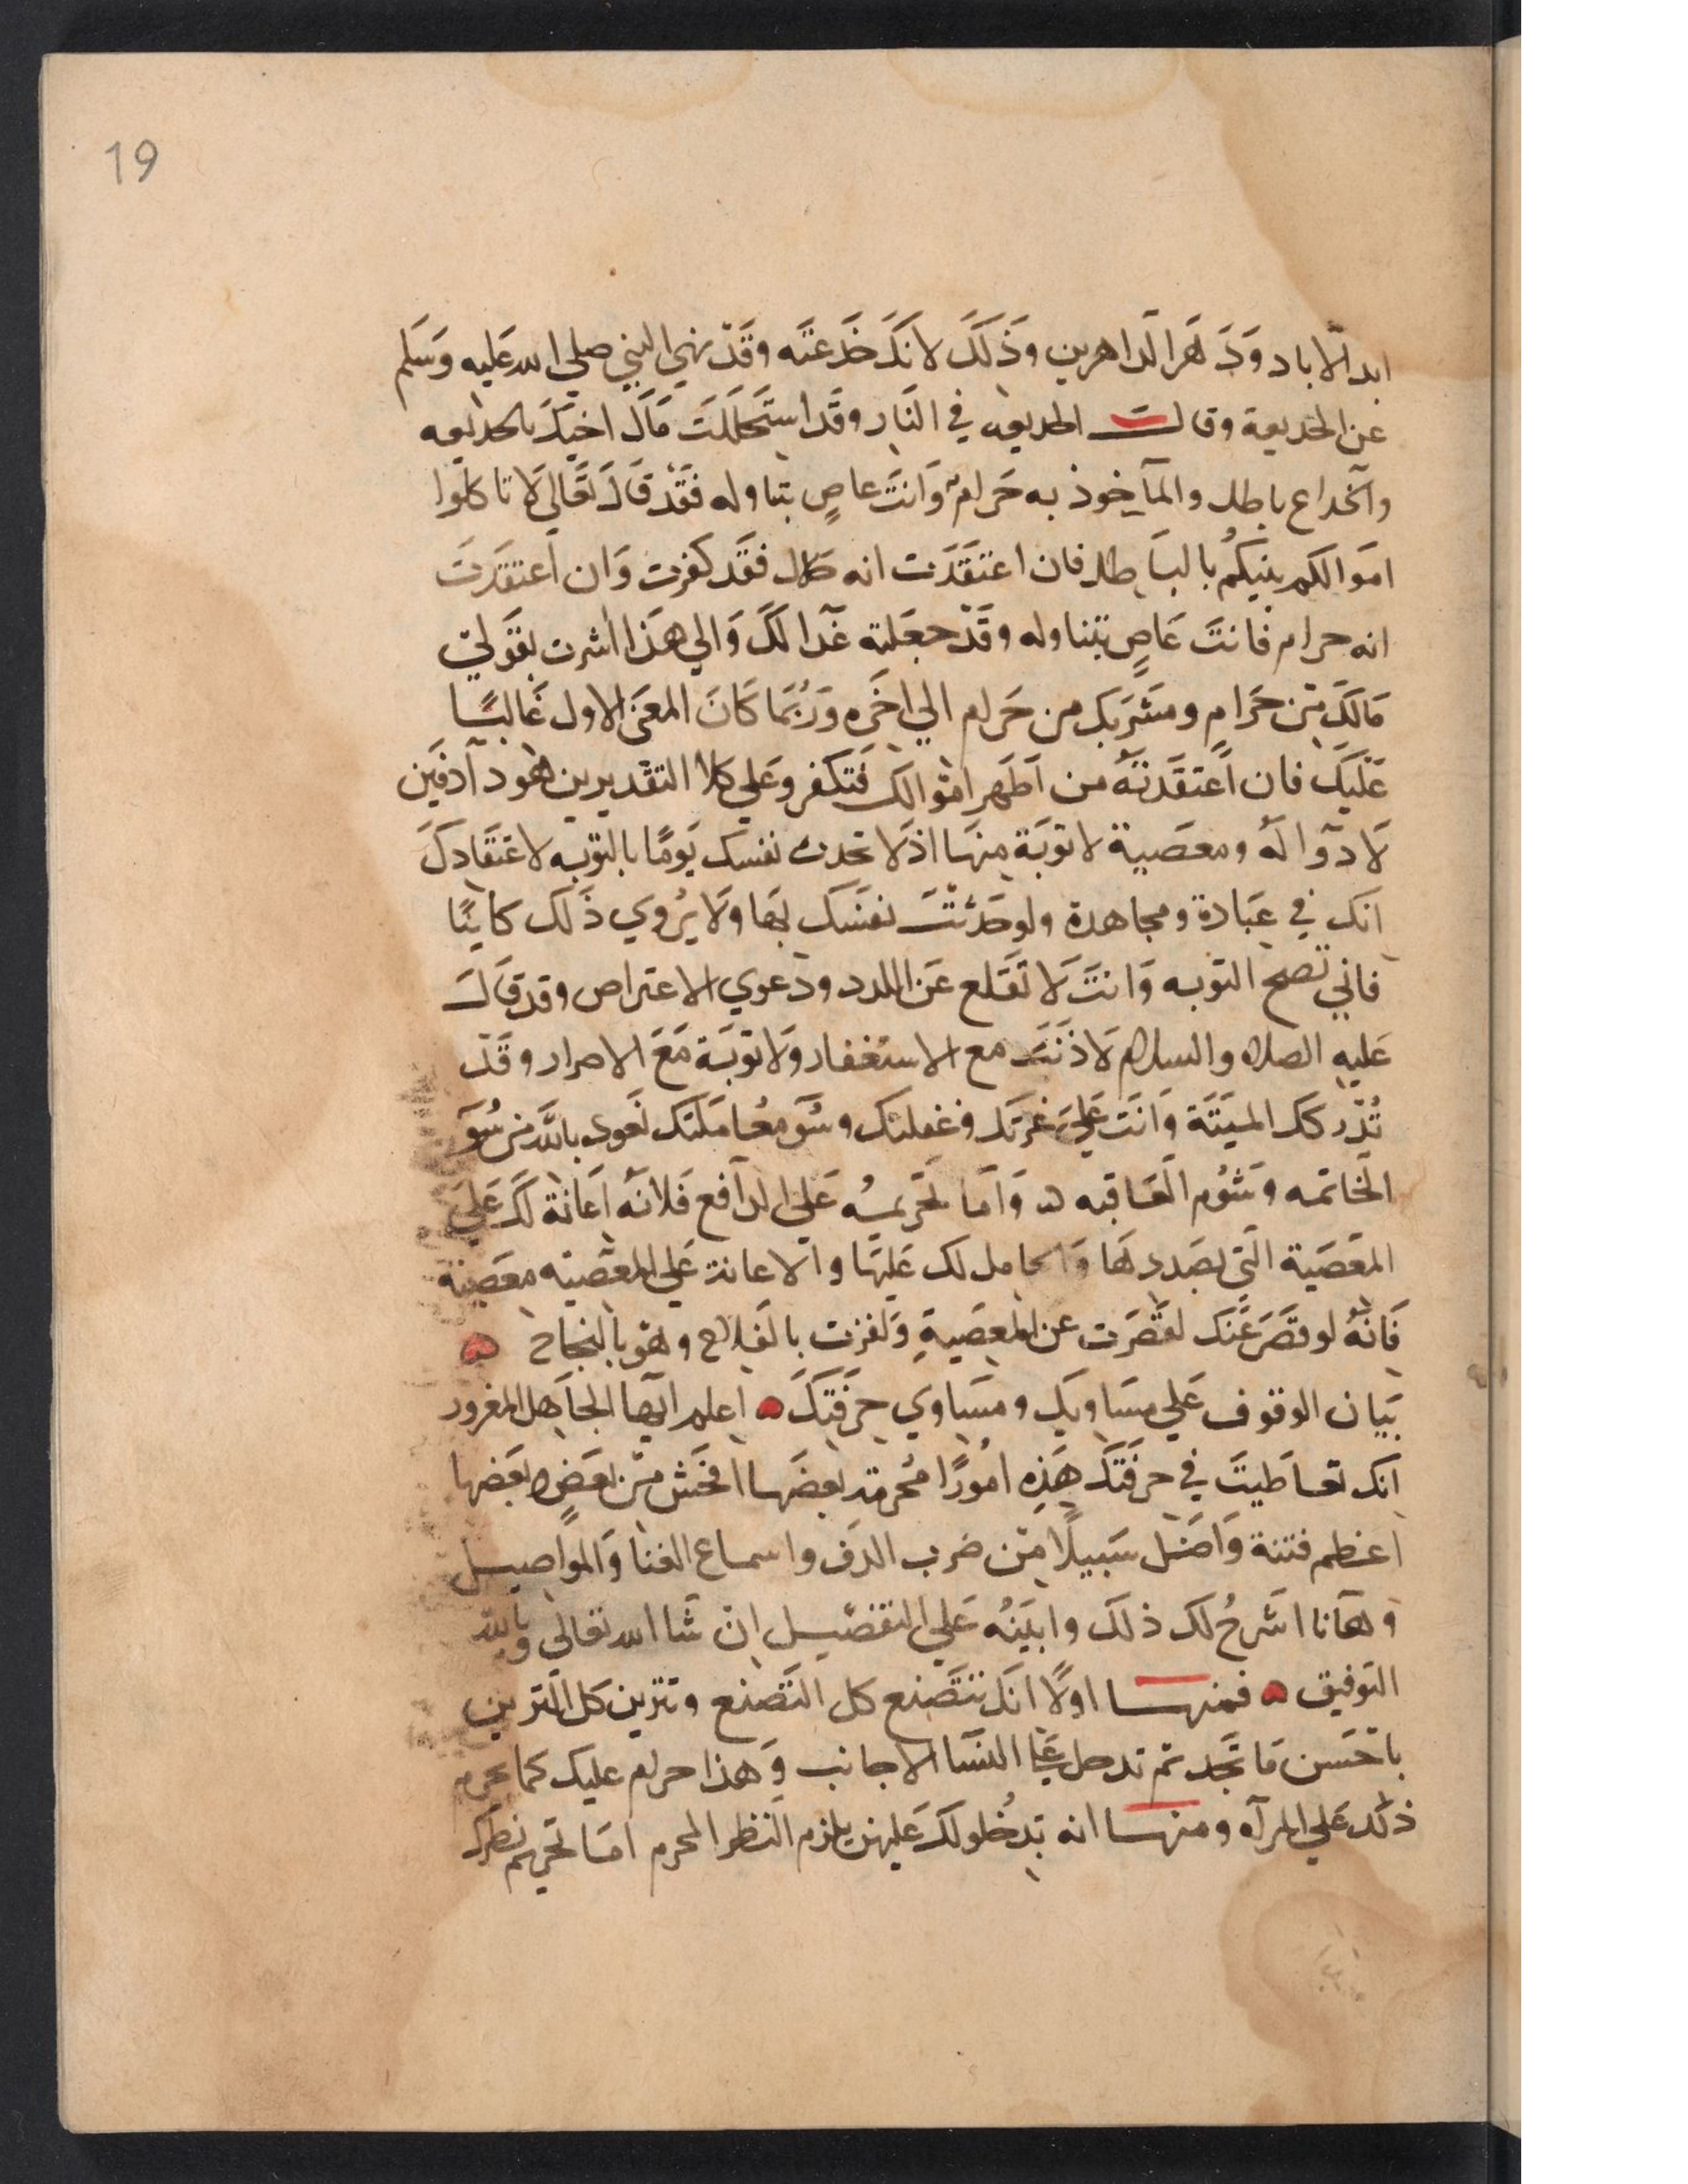 19
ابد الاباد وَدَهَر الدَاهرين وَذَلكَ لانكَ خَدَعتَه وقَدْ نهي النبي صلي الله عَليه وَسَلم
عن الخديعة وقالـــ الخديعه في النَار وقد استَحَللتَ مَالَ اخيكَ بالخديعه
والخداع باطل والمآخوذ به حَرام وَانتَ عاصٍ بتناوله فقَدْ قَالَ تَعَالي لَا تاكلوا
امَوالكم بنيكُم بالبَاطل فان اعتقَدَت انه حلال فقَد كفرت وَان اعتقدَت
انه حرام فانتَ عَاصٍ بتناوله وقَدْ جعَلته غَدا لكَ وَالي هَذا اشرت بقَولي
مَالكَ مِن حَرَامٍ ومَشرَبكَ من حَرام الي اخرَه وَرُبَمَا كَانَ المعَنى الاول غَالبًا
عَليَكَ فان اعتقَدتَهُ من اَطَهر امَوالك فَتكَفر وَعَلي كلا التقديرين هَو داَ دفَين
لَا دَوا لَهُ ومعَصَية لا توبَة منهَا اذ لَا تحدث نفسك يَومًا بالتوبه لاعتقَادكَ
انك في عِبَادة ومجاهدة ولو حَدثتَ نفسَكَ بهَا ولَا يُروي ذَلك كاينًا
فاني تصح التوبه وَانتَ لَا تقَلع عَن اللدد ودعوي الاعتراص وقد قَالَ
عَليه الصلاه والسلام لَا ذَنبَ مع الاستغفار وَلا توبَة مَعَ الاصرار وقَد
تُدْركك المنيَتَة وَانَت عَليَ غرتَك وغفلتك وسُوَ معُامَلتك نعَود بالله من سُوَ
الخَاتمه وشوُم العَاقبه ه وَاما تَحريمُه عَلي الدَافع فَلانَه اعَانَة لكَ عَليَ
المعَصَية التَي بصَددهَا وَالحامل لك عَليهَا والاعانة عَلي المعَصَيه معَصَية
فَانَهُ لو قصَرَ عَنكَ لقَصَرت عن المعصَيةِ وَلفزت بالفلاح وهَو بالنجاح ه
بَيان الوقوف عَلي مسَاويك ومسَاوي حِرفَتِكَ ه اعلم ايهَا الجاَهل المغرور
انك تعَاطيتَ في حرفتَكَ هَذِه امُورًا مُحرمة بعضَها افحَش مِن بعَضٍ وبعَضها
اعظم فتنة وَاضَل سَبيلًا مِن ضرب الدَف واسماع الغنا وَالموَاصيل
وهَانا اشرحُ لك ذلكَ وابيَنهُ عَلي التفصَيل ان شَا الله تعَالي وبالله
التوفيق ه فمنهـــا اولًا انك تتَصَنع كل التصَنع وتتزين كل التَزين
باحسَن مَا تجَد ثم تدخل عَلي النسَا الاجانب وَهذا حرام عليك كما يحرم
ذلك عَلي المرآه ومنهـــا انه بدُخُولكَ عَليهن يلزم النَظر المحرم امَا تحريم نظرك